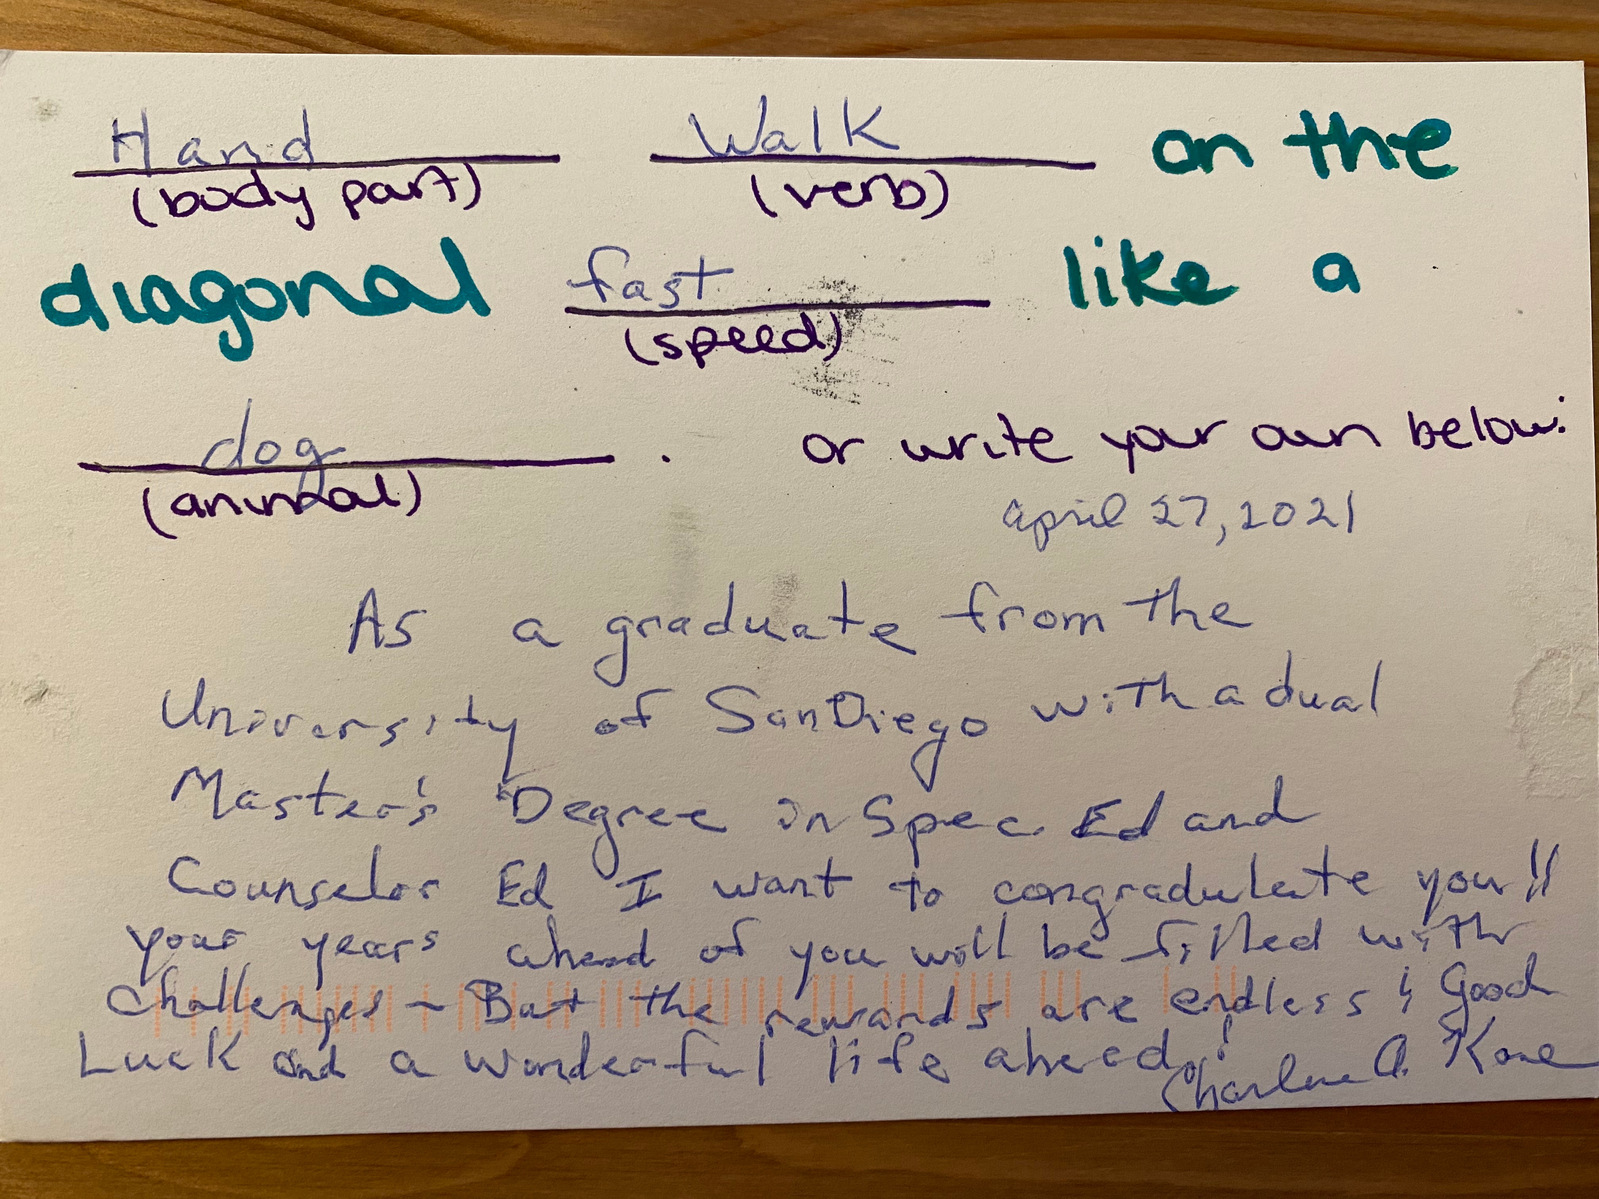 Hand Walk on the
(body part) (verb)
diagonal fast like a
(speed)
dog . or write your own below:
(animal)
April 27, 2021
As a graduate from the
University of San Diego with a dual
Master's Degree in Spec. Ed and
Counselor Ed I want to congradulate you!!
your years ahead of you will be filled with
Challenges - But the rewards are endless! Good
Luck and a wonderful life ahead!
Charlene A. Kane